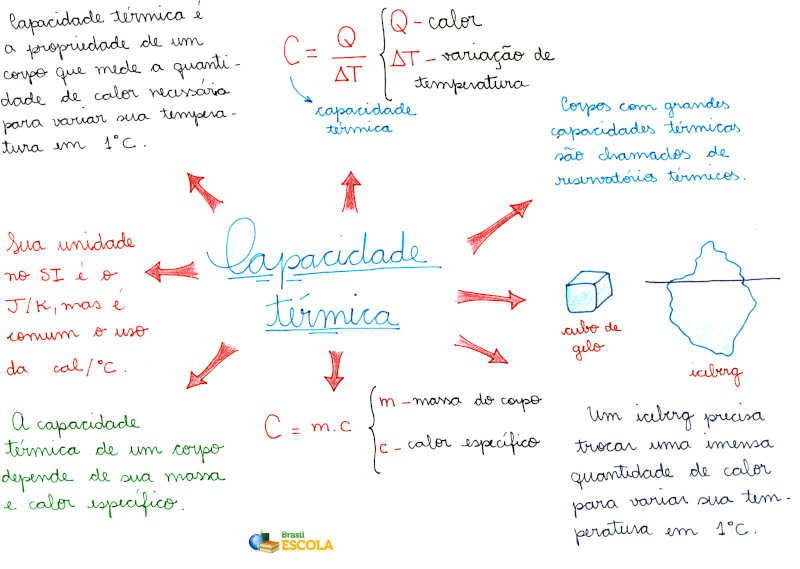 Capacidade térmica é
a propriedade de um
corpo que mede a quanti-
dade de calor necessária
para variar sua tempera-
tura em 1°C.
C = Q / ΔT
Q - calor
ΔT - variação de
temperatura
capacidade
térmica
Corpos com grandes
capacidades térmicas
são chamados de
reservatórios térmicos.
Sua unidade
no SI é o
J/K, mas é
comum o uso
da cal/°C.
Capacidade
térmica
cubo de
gelo
iceberg
A capacidade
térmica de um corpo
depende de sua massa
e calor específico.
C = m.c
m - massa do corpo
c - calor específico
Um iceberg precisa
trocar uma imensa
quantidade de calor
para variar sua tem-
peratura em 1°C.
Brasil
ESCOLA